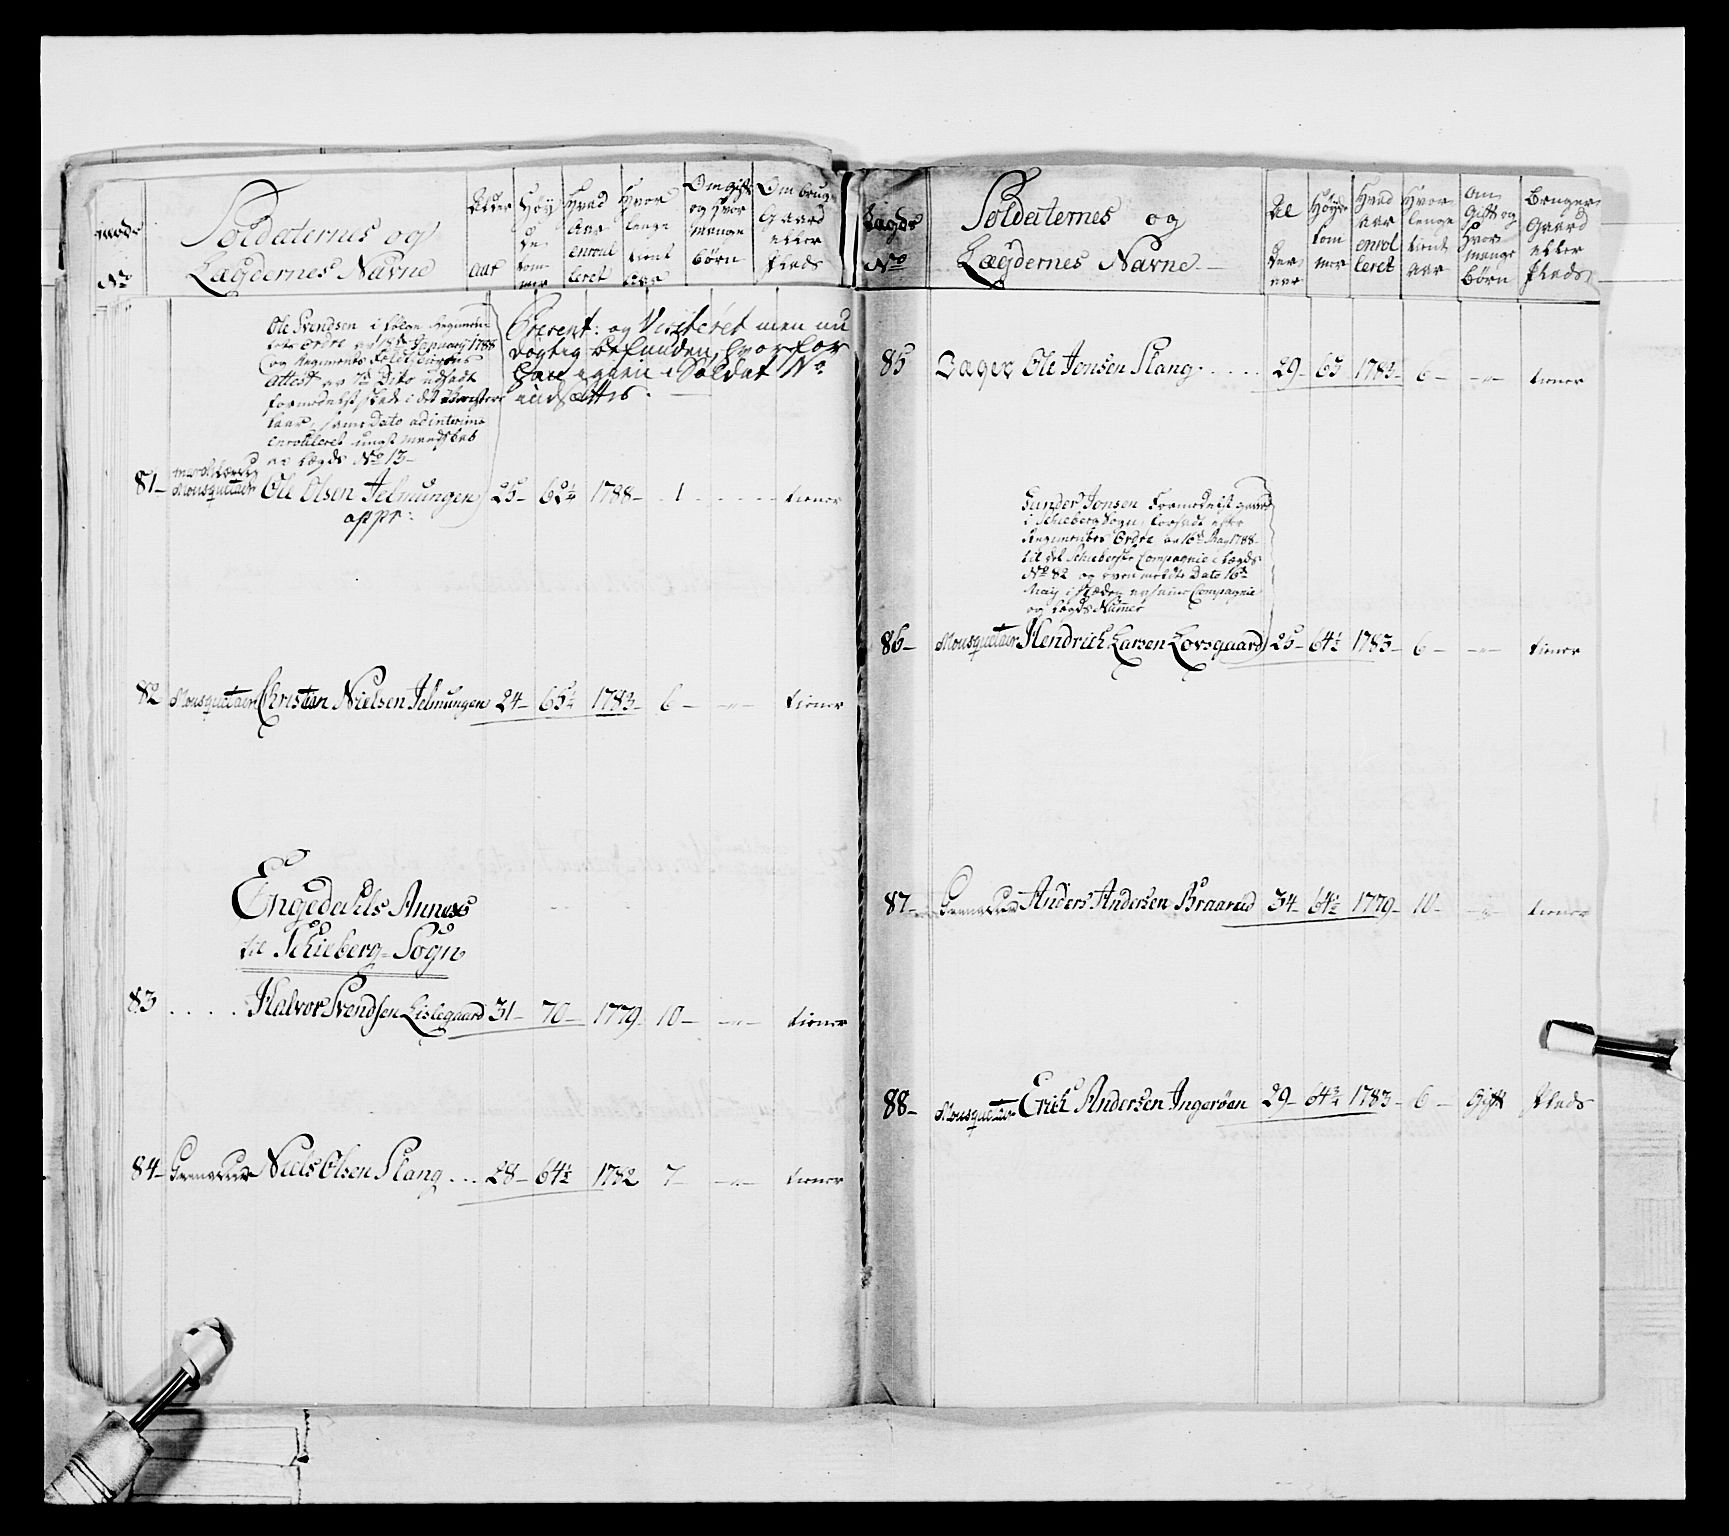 No
Soldaternes og
Lægdernes Navne
Alder
aar
Høy
de
tom
mer
Hvad
Aar
enroul
leret
Hvor
lenge
tient
aar
Om gift
og Hvor
mange
børn
Om brug
Gaard
eller
Plads
Ole Svendsen i følge Regimen
tets Ordre av January 1788
og Regiments Feldt
Attest av 7de Dito udsadt
formedelst skade i det
laar, samme Dato ad interim
enroulleret ungt mandskab
av Lægds No 13
Præsent: og Visiteret men nu
dögtig befunden, hvorfor
Han igien i Soldat No
indsættis.
81 Mousquetair Ole Olsen Jelmungen 25 62½ 1788 1 tiener
appr:
82 Mousquetair Christian Nielsen Jelmungen 24 65½ 1783 6 tiener
Engedahls Annexs
til Schieberg Sogn
83 Halvor Svendsen Lislegaard 31 70 1779 10 tiener
84 Grenadeer Niels Olsen Slang 28 64½ 1782 7 tiener
Lægds
No
Soldaternes og
Lægdernes Navne
Al
der
aar
Høyde
tom
mer
Hvad
aar
enrol
leret
Hvor
lenge
tient
aar
Om
Gift og
Hvor
mange
børn
Bruger
Gaard
eller
Plads
85 Jæger Ole Jonsen Slang 29 65 1783 6 tiener
Gunder Jonsen Formedelst gaard
i Schieberg Sogn, forsadt efter
Regimentes Ordre av 16de May 1788
til det Schiebergske Compagnie i Lægds
No 82 og ovenmeldte Dato 16de
May i stæden av samme Compagnie
og Lægds Numer
86 Mousquetair Hendrich Larsen Lovsgaard 25 64½ 1783 6 tiener
87 Grenadeer Anders Andersen Braarud 34 64½ 1779 10 tiener
88 Mousquetair Erich Andersen Ingeröen 29 64¾ 1783 6 Gift Plads